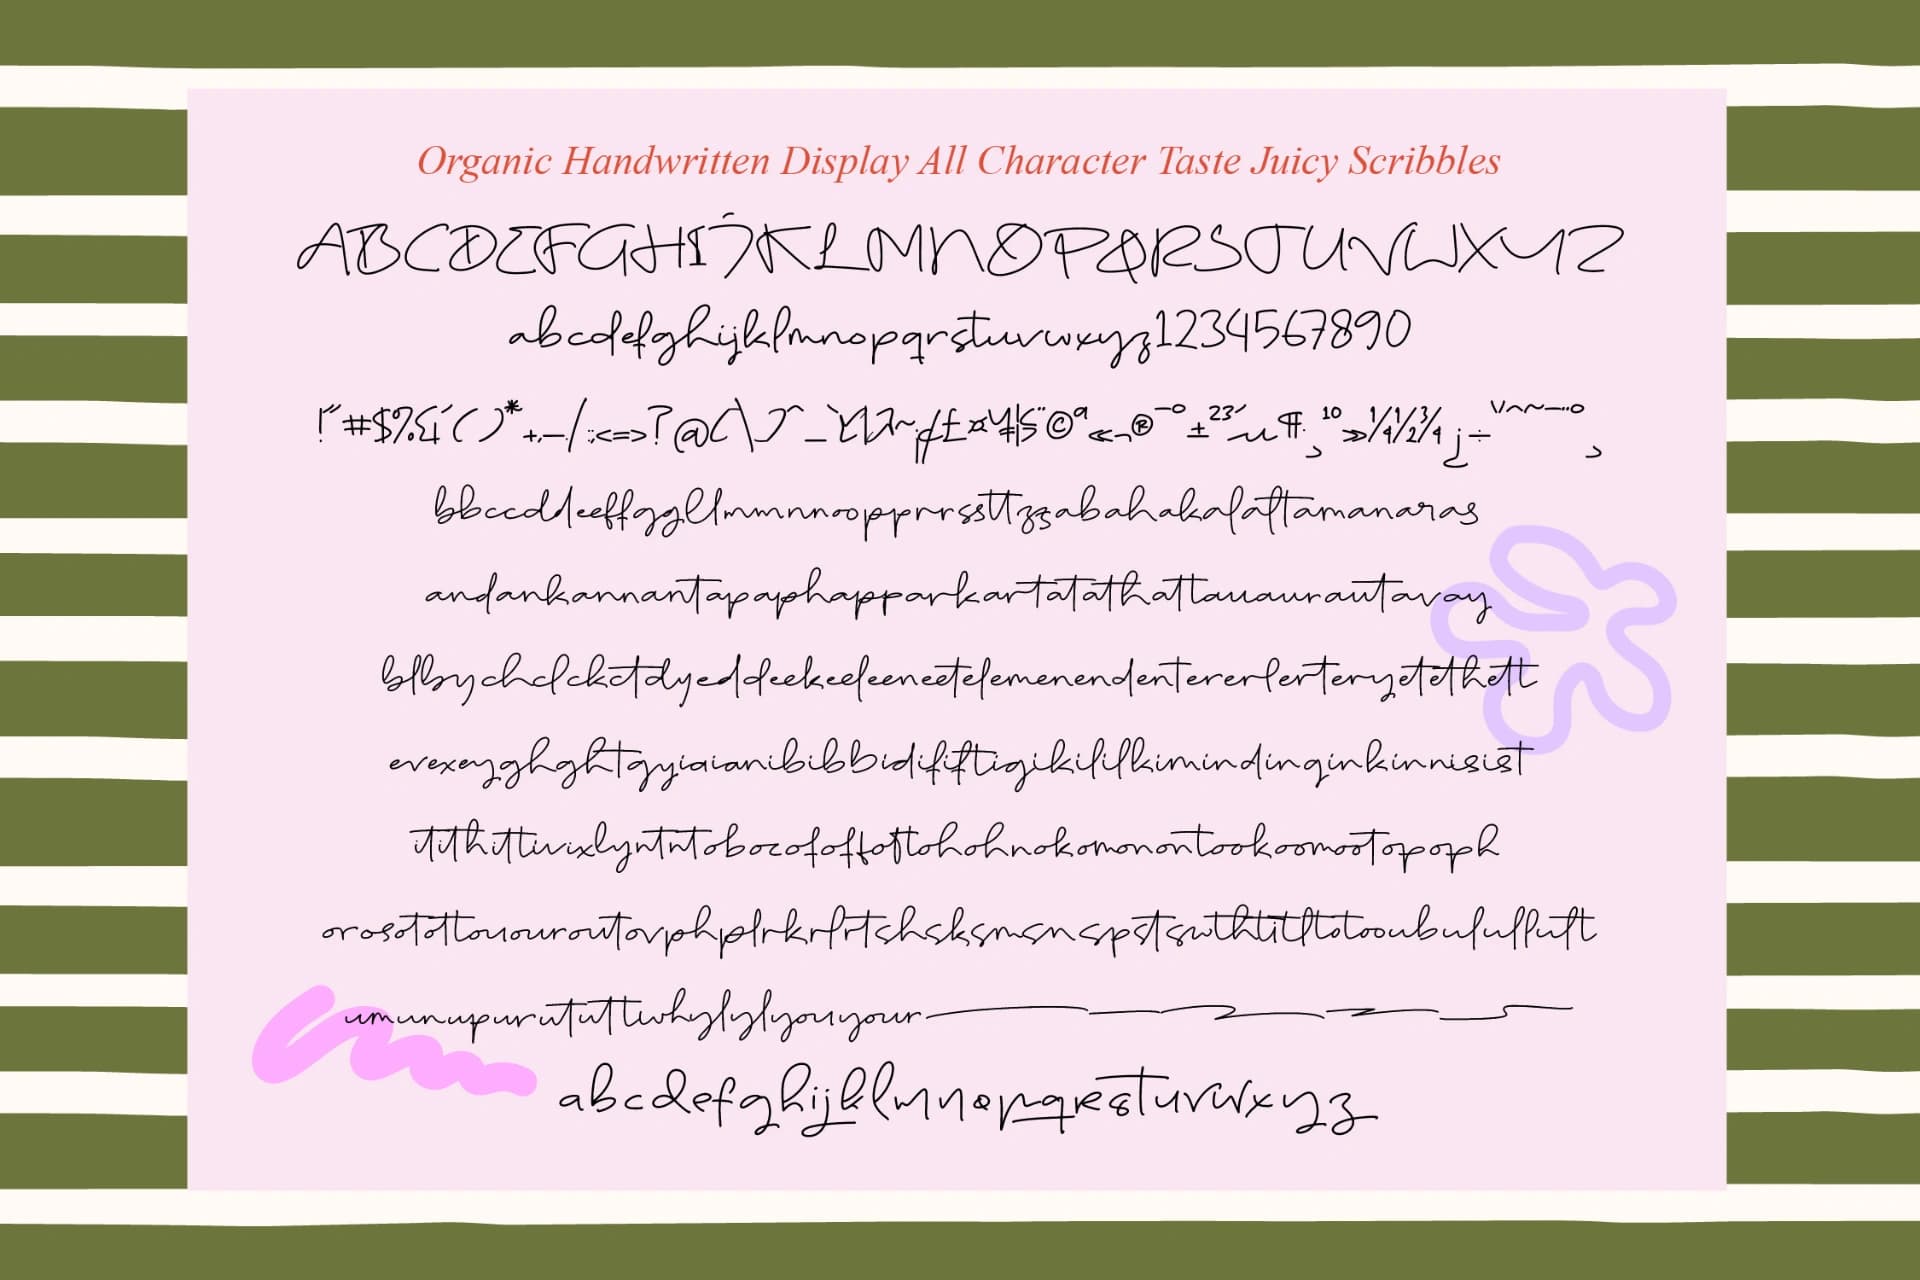 Organic Handwritten Display All Character Taste Juicy Scribbles
ABCDEFGHIJKLMNOPQRSTUVWXYZ
abcdefghijklmnopqrstuvwxyz1234567890
!"#$%&'()*+,-./:;<=>?@[\]^_`{|}~¡¢£¤¥¦§¨©ª«¬®¯°±²³´µ¶·¸¹º»¼½¾¿÷
bbccddeeffggllmmnnoopprrssttzzabahakalaltamanaras
andankannantapaphapparkartatathattauaurautavay
blbychclckctdyeddeekeeleeneetelemenendentererlerteryetethett
evexeyghghtgyiaianibibbidififtigikililkimindinginkinnisist
itithittivixlyntntobocofoffoftohohnokomonontookoomootopoph
orosotottououroutovphplrkrlrtshsksmsnspstswthtitltotooubulullult
umunupurututtiwhylylyouyour
abcdefghijklmnopqrstuvwxyz